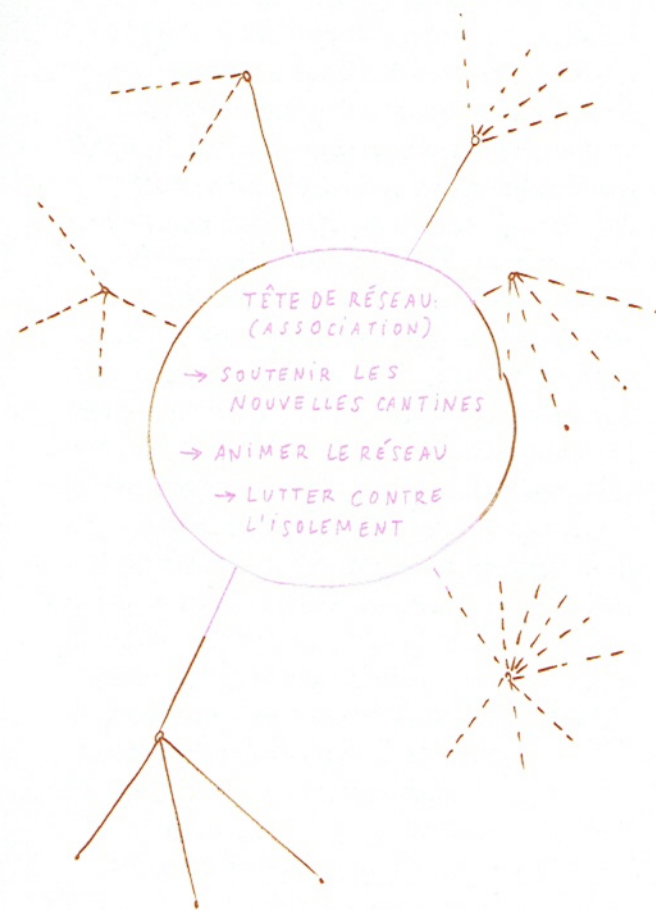 TÊTE DE RÉSEAU:
(ASSOCiATiON)
→ SOUTENiR LES
NOUVELLES CANTiNES
→ ANiMER LE RÉSEAU
→ LUTTER CONTRE
L'iSOLEMENT